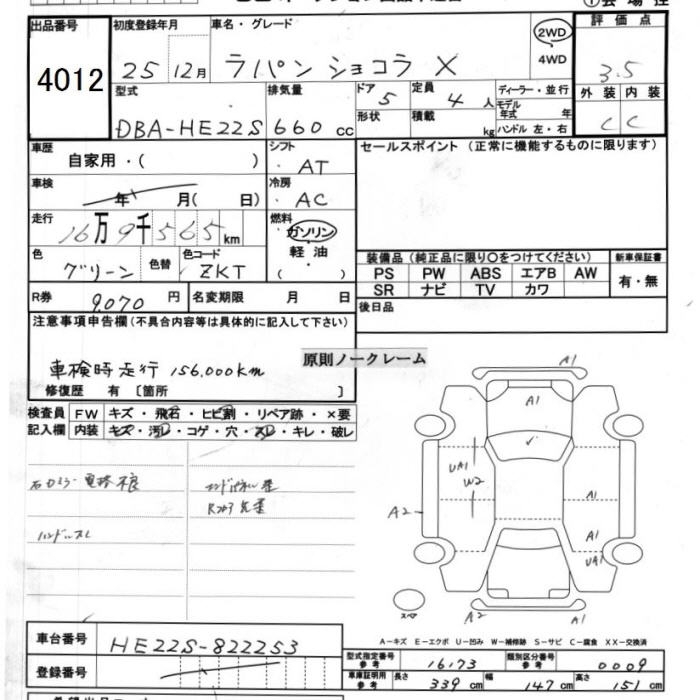 出品番号 初度登録年月 車名・グレード 評価点
4012 25 12月 ラパン ショコラ X 2WD 4WD 3.5
外装 内装
C C
型式 排気量 ドア 定員 ディーラー・並行
DBA-HE22S 660cc 5 4人 モデル年式 年
形状 積載 kg ハンドル 左・右
車歴 シフト セールスポイント (正常に機能するものに限ります)
自家用・( ) AT
車検 冷房
年 月( 日) AC
走行 燃料
16万9千565km ガソリン
軽油
( )
色 色替 色コード
グリーン ZKT
装備品 (純正品に限り〇をつけてください) 新車保証書
PS PW ABS エアB AW 有・無
SR ナビ TV カワ
R券 9,070円 名変期限 月 日 後日品
注意事項申告欄 (不具合内容等は具体的に記入して下さい)
車検時走行 156,000km
原則ノークレーム
修復歴 有 〔箇所 〕
検査員 FW キズ・飛石・ヒビ割・リペア跡・×要
記入欄 内装 キズ・汚レ・コゲ・穴・スレ・キレ・破レ
ハンドルスレ
A1
A1
UA1
W2
A1
A2
A1
UA1
A2
A1
スペア
A-キズ E-エクボ U-凹み W-補修跡 S-サビ C-腐食 XX-交換済
車台番号 HE22S-822253
登録番号
型式指定番号参考 16173 類別区分番号参考 0009
車庫証明用参考 長さ 339cm 幅 147cm 高さ 151cm